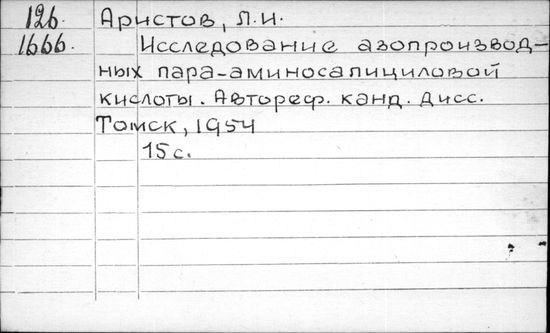 126.
1666.
Аристов, Л.И.
Исследование азопроизвод-
ных пара-аминосалициловой
кислоты. Автореф. канд. дисс.
Томск, 1954
15 с.